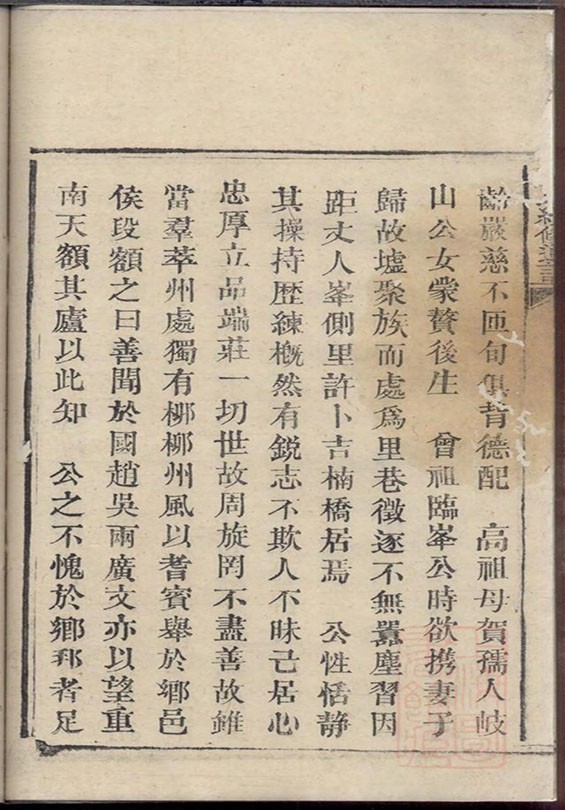 齡嚴慈不匝旬俱背德配 高祖母賀孺人岐
山公女蒙贅後生 曾祖臨峯公時欲携妻子
歸故墟聚族而處爲里巷徵逐不無囂塵習因
距丈人峯側里許卜吉楠橋居焉 公性恬靜
其操持歷練概然有銳志不欺人不昧己居心
忠厚立品端莊一切世故周旋罔不盡善故雖
當羣萃州處獨有柳柳州風以耆賓舉於鄉邑
侯段額之曰善聞於國趙吳兩廣文亦以望重
南天額其廬以此知 公之不愧於鄉邦者足